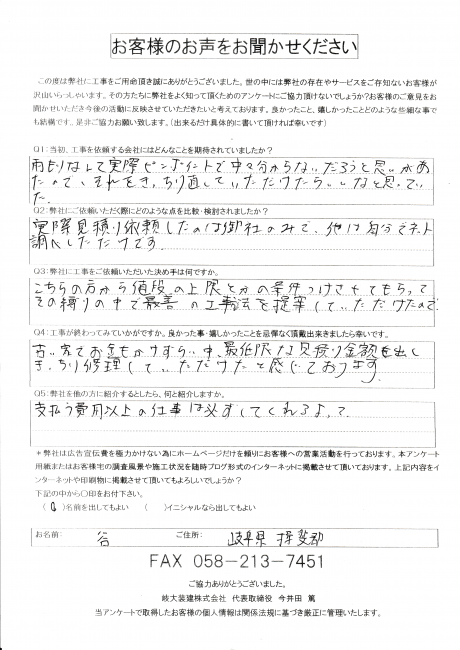 お客様のお声をお聞かせください
この度は弊社に工事をご用命頂き誠にありがとうございました。世の中には弊社の存在やサービスをご存知ないお客様が
沢山いらっしゃいます。その方たちに弊社をよく知って頂くためのアンケートにご協力頂けないでしょうか?お客様のご意見をお
聞かせいただき今後の活動に反映させていただきたいと考えております。良かったこと、嬉しかったことどのような些細な事で
も結構です...是非ご協力お願い致します。(出来るだけ具体的に書いて頂ければ幸いです)
Q1:当初、工事を依頼する会社にはどんなことを期待されていましたか?
雨もりなんて実際ピンポイントで中々分からないだろうと思いがあっ
たので、それをきっちり直していただけたらいいなと思ってい
た
Q2:弊社にご依頼いただく際にどのような点を比較・検討されましたか?
実際見積り依頼したのは御社のみで、他は自分でネット
調べしただけです
Q3:弊社に工事をご依頼いただいた決め手は何ですか。
こちらの方から値段の上限とかの条件つけさせてもらって
その縛りの中で最善の工事法を提案していただけたので
Q4:工事が終わってみていかがですか。良かった事・嬉しかったことを忌憚なく頂戴出来きましたら幸いです。
古い家でお金もかけずらい中、最低限な見積り金額を出し
きっちり修理していただけたと感じております
Q5:弊社を他の方に紹介するとしたら、何と紹介しますか。
支払う費用以上の仕事は必ずしてくれるよって
*弊社は広告宣伝費を極力かけない為にホームページだけを頼りにお客様への営業活動を行っております。本アンケート
用紙またはお客様宅の調査風景や施工状況を随時ブログ形式のインターネットに掲載させて頂いております。上記内容をイ
ンターネットや印刷物に掲載させて頂いてもよろしいでしょうか?
下記の中から〇印をお付下さい。
(〇)名前を出してもよい ( )イニシャルなら出してもよい
お名前: 谷 ご住所: 岐阜県 揖斐郡
FAX 058-213-7451
ご協力ありがとうございました。
岐大装建株式会社 代表取締役 今井田 篤
当アンケートで取得したお客様の個人情報は関係法規に基づき厳正に管理いたします。